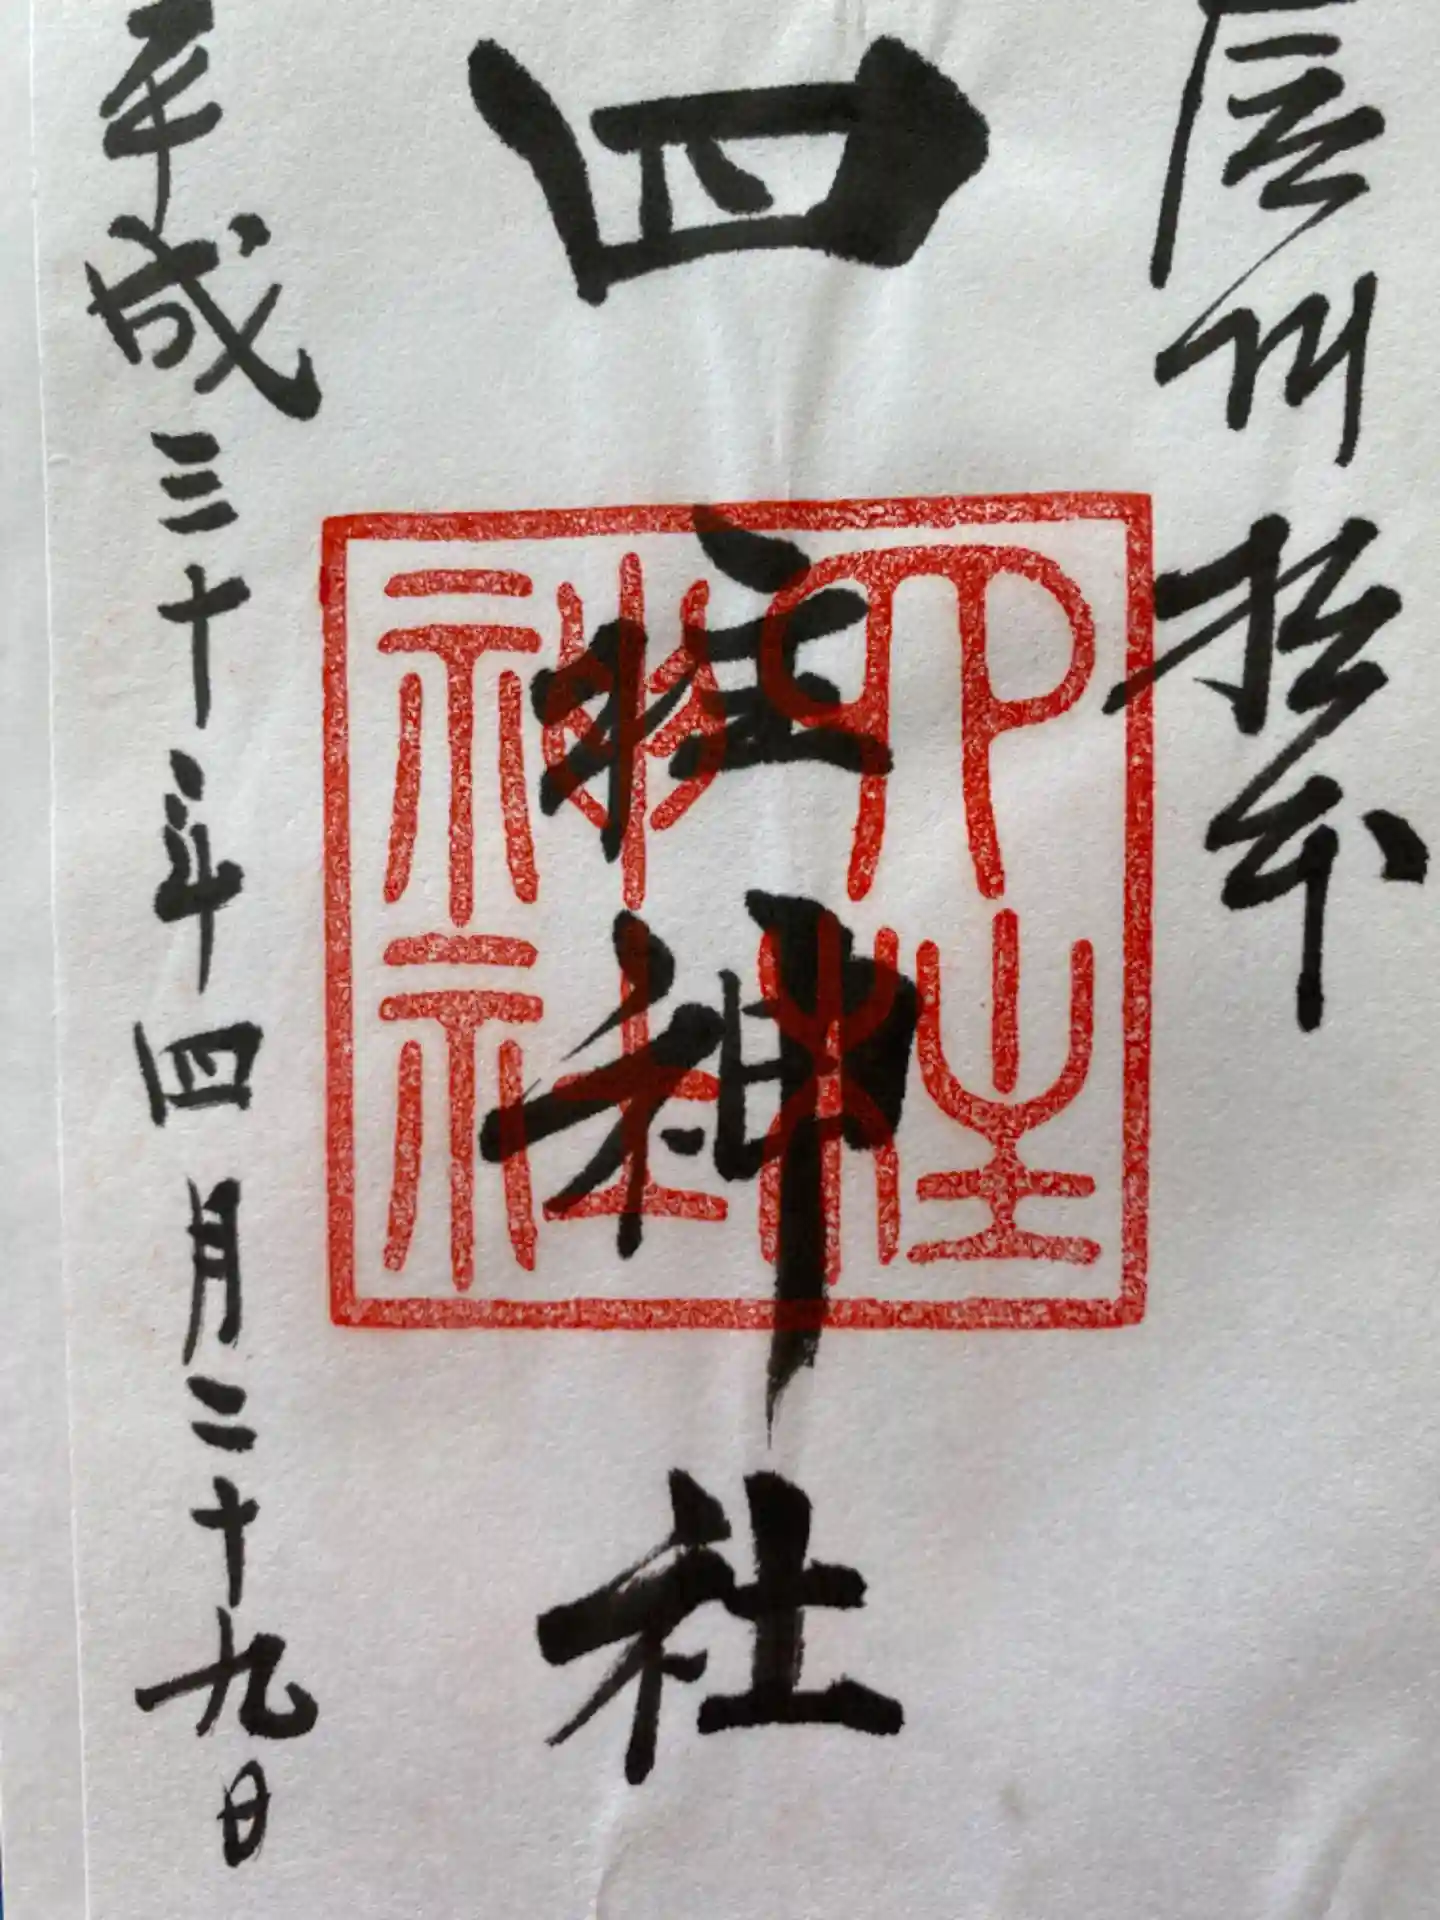 信州松本
四
柱
神
社
四柱神社
平成三十年四月二十九日